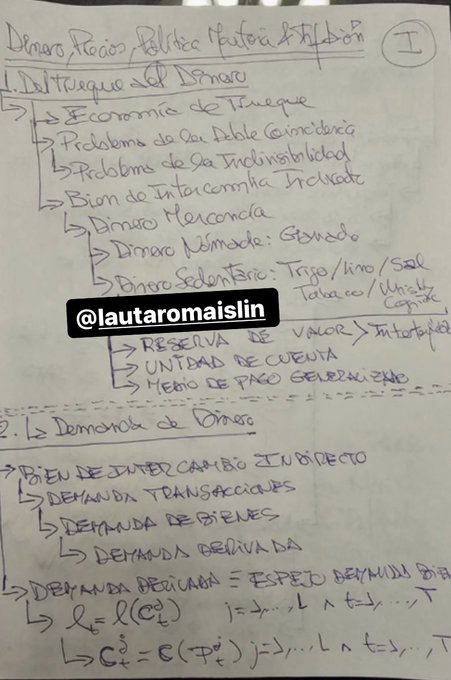 Dinero, Precios, Política Monetaria & Inflación
I
1. Del Trueque al Dinero
Economía de Trueque
Problema de la Doble Coincidencia
Problema de la Indivisibilidad
Bien de Intercambio Indirecto
Dinero Mercancía
Dinero Nómade: Ganado
Dinero Sedentario: Trigo/Vino/Sal
Tabaco/Whisky
Cognac
@lautaromaislin
RESERVA DE VALOR >
UNIDAD DE CUENTA
MEDIO DE PAGO GENERALIZADO
2. Demanda de Dinero
BIEN DE INTERCAMBIO INDIRECTO
DEMANDA TRANSACCIONES
DEMANDA DE BIENES
DEMANDA DERIVADA
DEMANDA DERIVADA = ESPEJO DEMANDA BIEN
lₜ = l(Cₜʲ) j=1,...,L ∧ t=1,...,T
Cₜʲ = C(Pₜʲ) j=1,...,L ∧ t=1,...,T